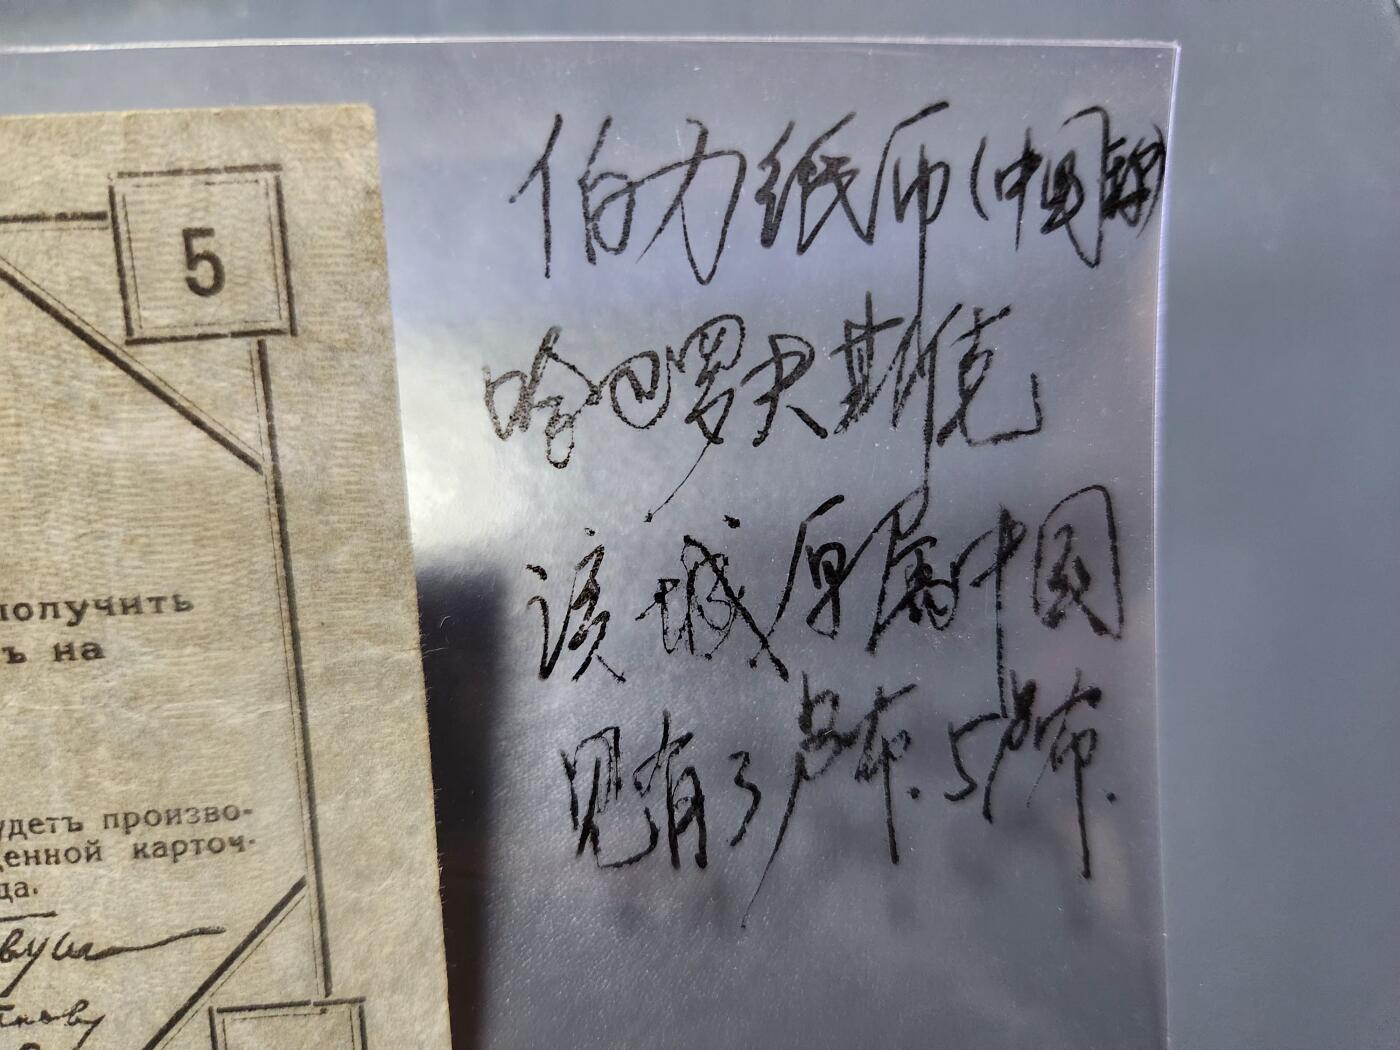 5
получить
ъ на
удетъ произво-
денной карточ-
да.
伯力纸币(中国
哈巴罗夫斯克
该城原属中国
见有3卢布.5卢布.